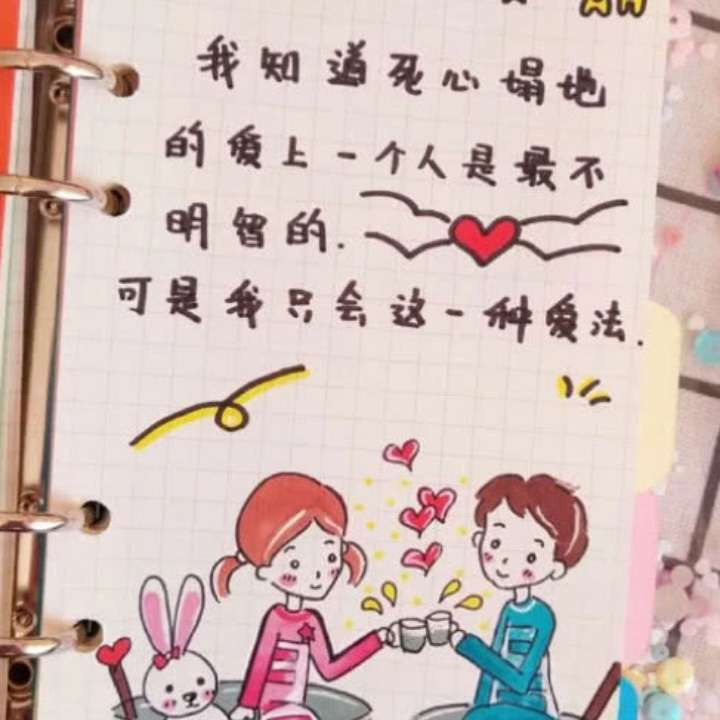 我知道死心塌地
的爱上一个人是最不
明智的.
可是我只会这一种爱法.